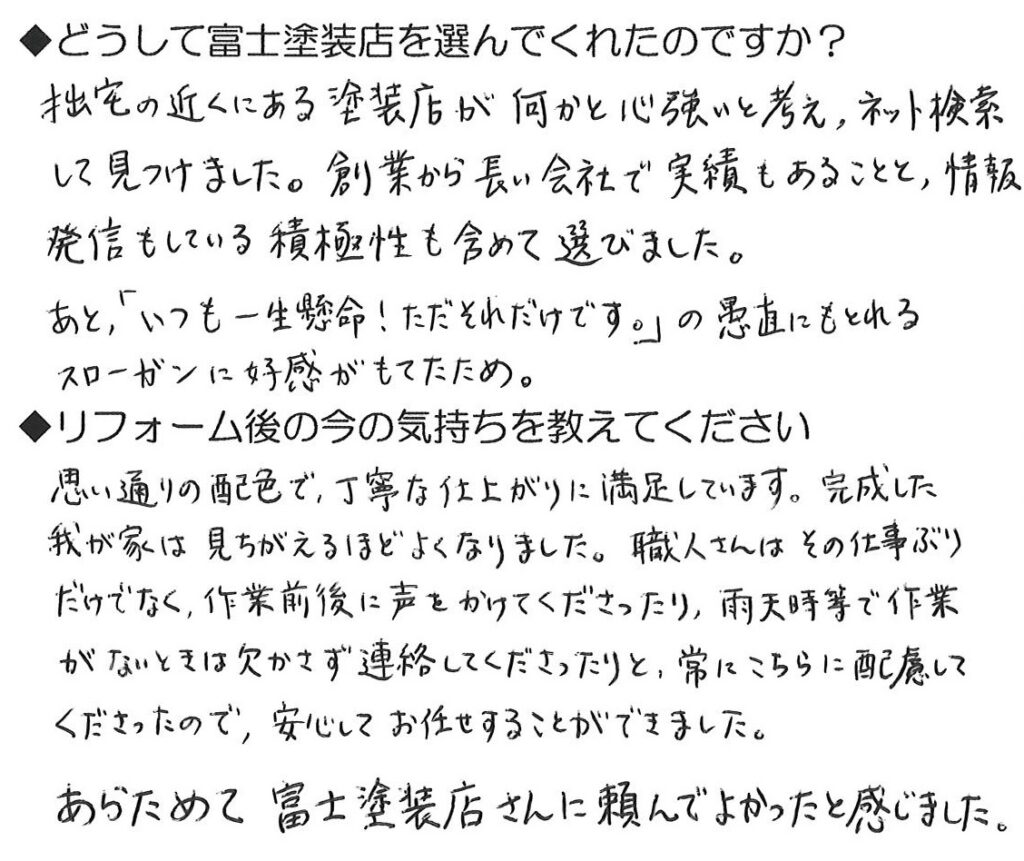 ◆どうして富士塗装店を選んでくれたのですか？
拙宅の近くにある塗装店が何かと心強いと考え，ネット検索
して見つけました。創業から長い会社で実績もあることと，情報
発信もしている積極性も含めて選びました。
あと，「いつも一生懸命！ただそれだけです。」の愚直にもとれる
スローガンに好感がもてたため。
◆リフォーム後の今の気持ちを教えてください
思い通りの配色で，丁寧な仕上がりに満足しています。完成した
我が家は見ちがえるほどよくなりました。職人さんはその仕事ぶり
だけでなく，作業前後に声をかけてくださったり，雨天時等で作業
がないときは欠かさず連絡してくださったりと，常にこちらに配慮して
くださったので，安心してお任せすることができました。
あらためて富士塗装店さんに頼んでよかったと感じました。